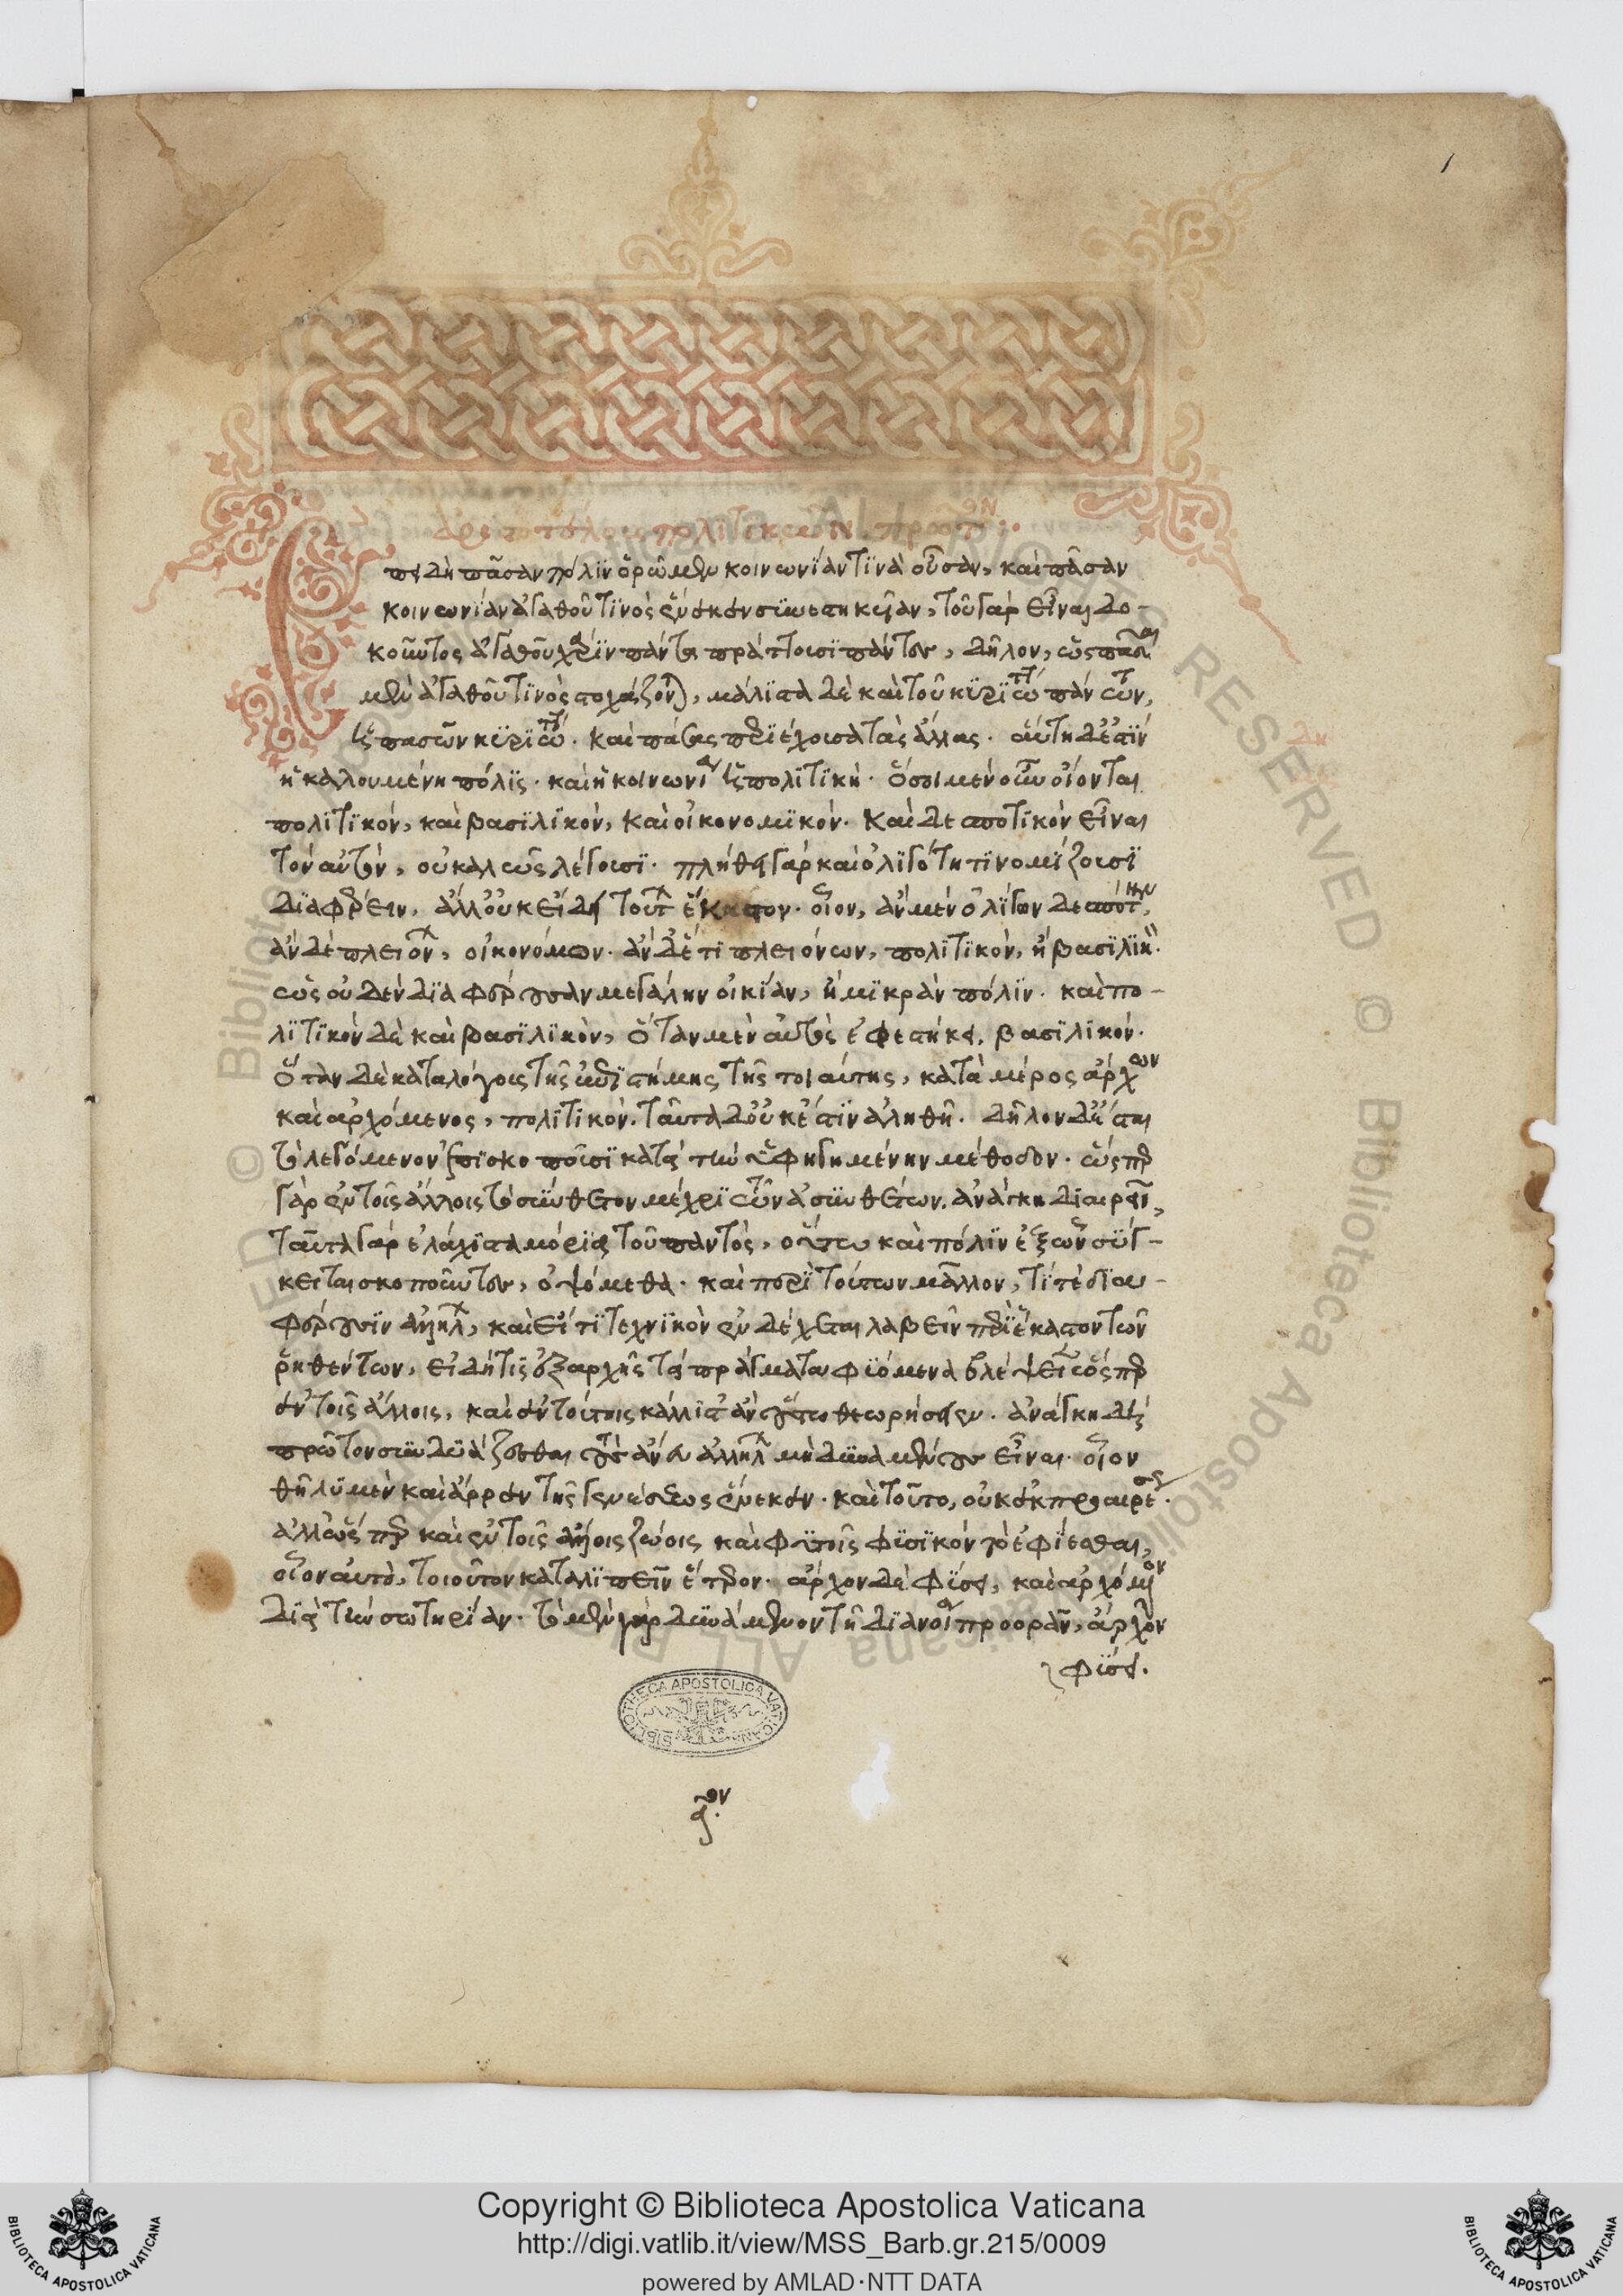 ἀριστοτέλους πολιτικῶν πρῶτον:
Ἐπειδὴ πᾶσαν πόλιν ὁρῶμεν κοινωνίαν τινὰ οὖσαν, καὶ πᾶσαν
κοινωνίαν ἀγαθοῦ τινὸς ἕνεκεν συνεστηκεῖαν, τοῦ γὰρ εἶναι δο-
κοῦντος ἀγαθοῦ χάριν πάντα πράττουσι πάντες, δῆλον, ὡς πᾶσαι
μὲν ἀγαθοῦ τινὸς στοχάζονται, μάλιστα δὲ καὶ τοῦ κυριωτάτου πάντων,
ἡ πασῶν κυριωτάτη. καὶ πάσας περιέχουσα τὰς ἄλλας. αὕτη δέ ἐστιν
ἡ καλουμένη πόλις. καὶ ἡ κοινωνία ἡ πολιτική. ὅσοι μὲν οὖν οἴονται
πολιτικὸν, καὶ βασιλικὸν, καὶ οἰκονομικόν. καὶ δεσποτικὸν εἶναι
τὸν αὐτὸν, οὐ καλῶς λέγουσι. πλήθει γὰρ καὶ ὀλιγότητι νομίζουσι
διαφέρειν, ἀλλ' οὐκ εἴδει τούτων ἕκαστον. οἷον, ἂν μὲν ὀλίγων δεσπότην,
ἂν δὲ πλειόνων, οἰκονόμον. ἂν δ' ἔτι πλειόνων, πολιτικὸν, ἢ βασιλικὸν.
ὡς οὐδὲν διαφέρουσαν μεγάλην οἰκίαν, ἢ μικρὰν πόλιν. καὶ πο-
λιτικὸν δὲ καὶ βασιλικὸν, ὅταν μὲν αὐτὸς ἐφεστήκει, βασιλικόν.
ὅταν δὲ κατὰ λόγους τῆς ἐπιστήμης τῆς τοιαύτης, κατὰ μέρος ἄρχων
καὶ ἀρχόμενος, πολιτικόν. ταῦτα δ' οὐκ ἔστιν ἀληθῆ. δῆλον δ' ἔσται
τὸ λεγόμενον ἐπισκοποῦσι κατὰ τὴν ὑφηγημένην μέθοδον. ὥσπερ
γὰρ ἐν τοῖς ἄλλοις τὸ σύνθετον μέχρι τῶν ἀσυνθέτων. ἀνάγκη διαιρεῖν,
ταῦτα γὰρ ἐλάχιστα μόρια τοῦ παντὸς, οὕτω καὶ πόλιν ἐξ ὧν σύγ-
κειται σκοποῦντες, ὀψόμεθα. καὶ περὶ τούτων μᾶλλον, τί τε δια-
φέρουσιν ἀλλήλων, καὶ εἴ τι τεχνικὸν ἐνδέχεται λαβεῖν περὶ ἕκαστον τῶν
ῥηθέντων, εἰ δή τις ἐξ ἀρχῆς τὰ πράγματα φυόμενα βλέψειεν ὥσπερ
ἐν τοῖς ἄλλοις, καὶ ἐν τούτοις κάλλιστ' ἂν οὕτω θεωρήσειεν. ἀνάγκη δὴ
πρῶτον συνδυάζεσθαι τοὺς ἄνευ ἀλλήλων μὴ δυναμένους εἶναι. οἷον
θῆλυ μὲν καὶ ἄρρεν τῆς γενέσεως ἕνεκεν. καὶ τοῦτο, οὐκ ἐκ προαιρέσεως.
ἀλλ' ὥσπερ καὶ ἐν τοῖς ἄλλοις ζώοις καὶ φυτοῖς φυσικὸν τὸ ἐφίεσθαι,
οἷον αὐτὸ, τοιοῦτον καταλιπεῖν ἕτερον. ἄρχον δὲ φύσει, καὶ ἀρχόμενον
διὰ τὴν σωτηρίαν. τὸ μὲν γὰρ δυνάμενον τῆ διανοία προορᾶν, ἄρχον
φύσει.
BIBLIOTHECA APOSTOLICA VATICANA
αον.
Copyright © Biblioteca Apostolica Vaticana
http://digi.vatlib.it/view/MSS_Barb.gr.215/0009
powered by AMLAD·NTT DATA
BIBLIOTECA APOSTOLICA VATICANA
BIBLIOTECA APOSTOLICA VATICANA